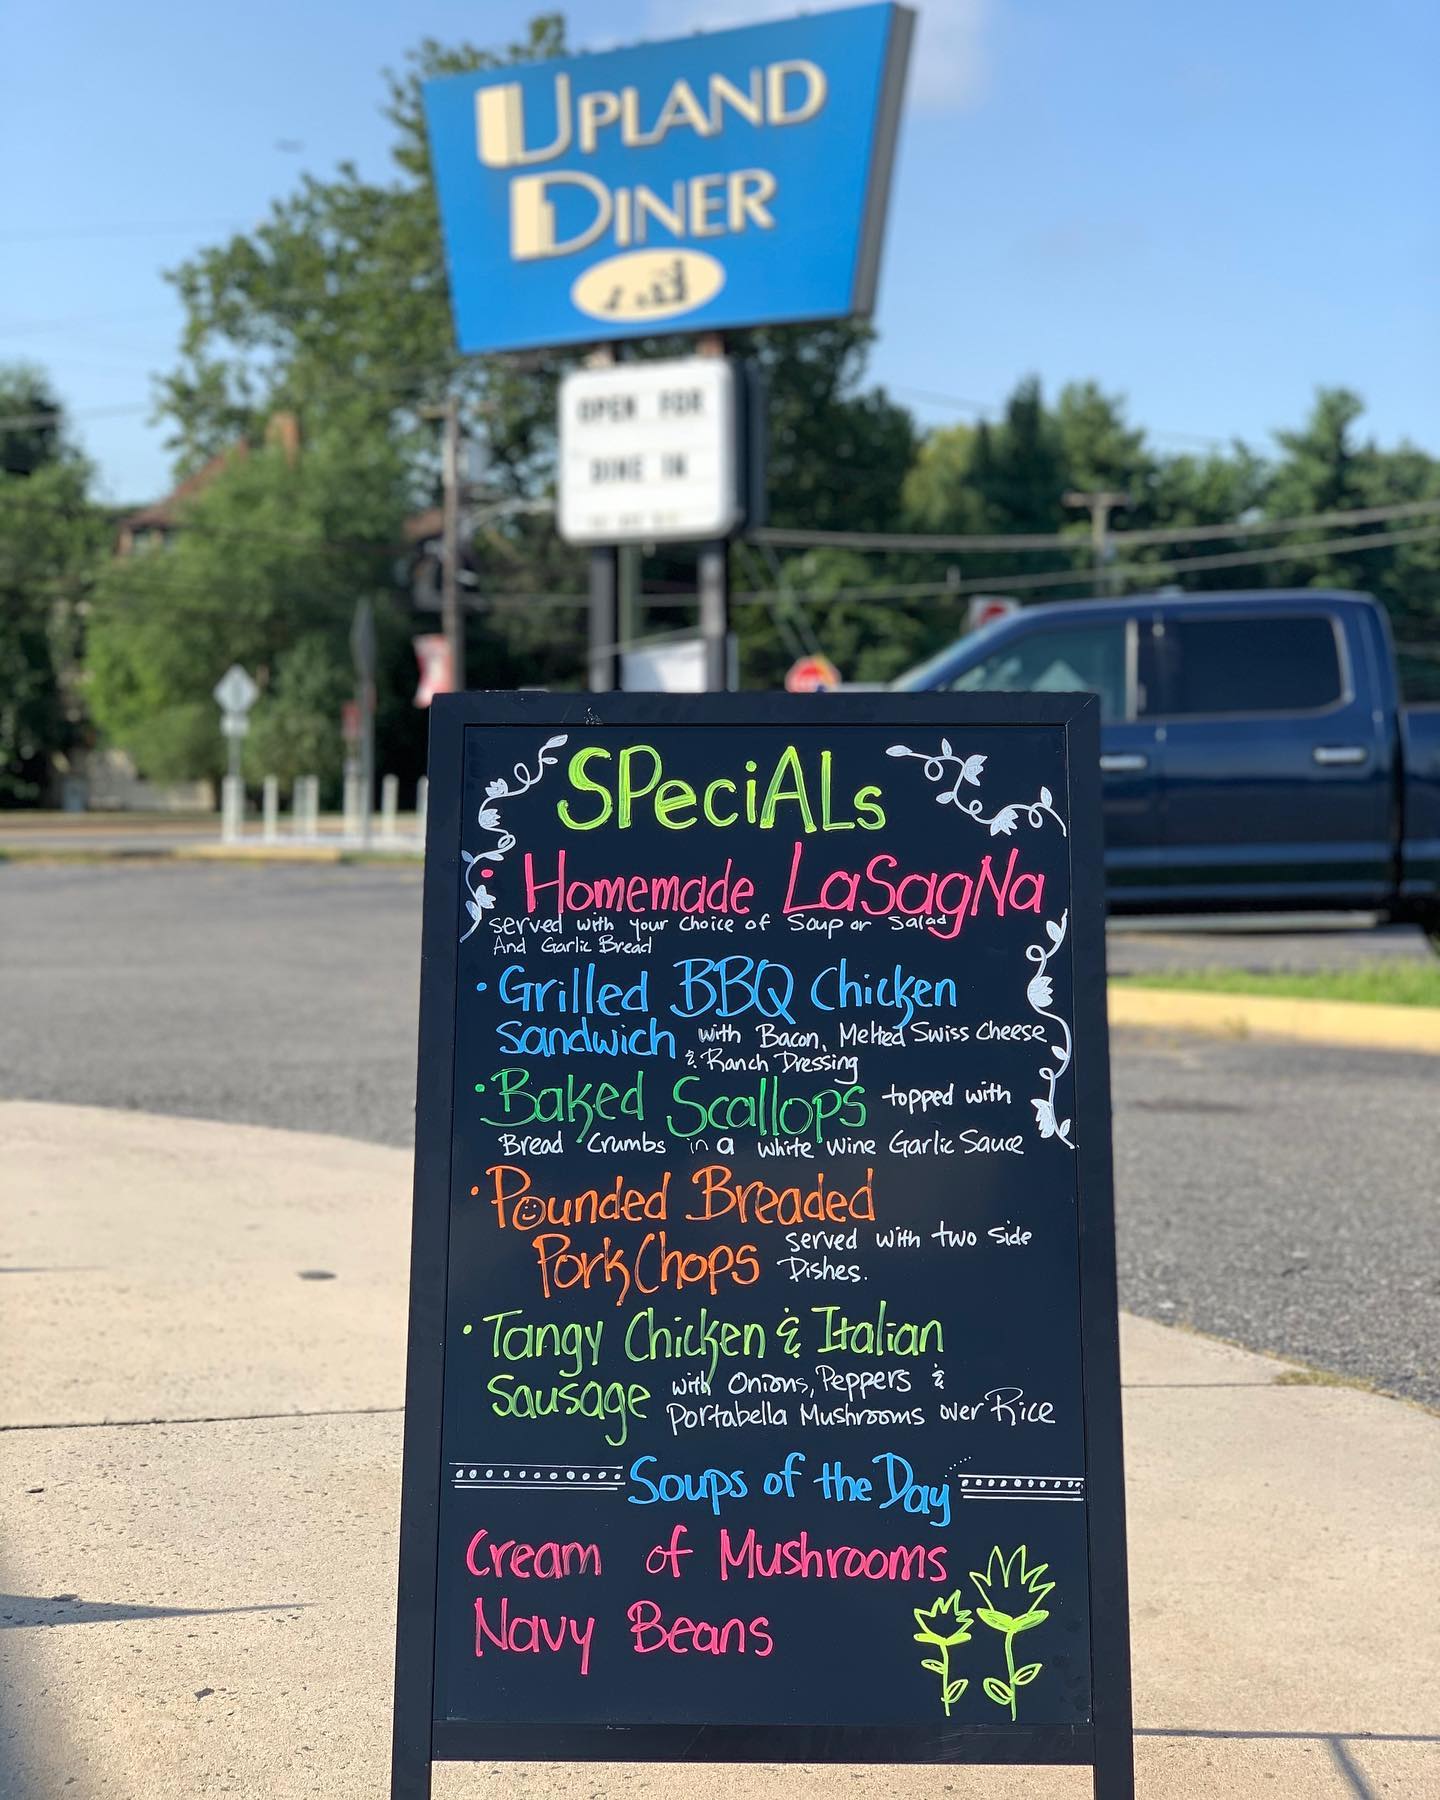 UPLAND
DINER
OPEN FOR
DINE IN
SPeciALs
• Homemade LaSagNa
served with your choice of Soup or Salad
And Garlic Bread
• Grilled BBQ Chicken
Sandwich with Bacon, Melted Swiss Cheese
& Ranch Dressing
• Baked Scallops topped with
Bread Crumbs in a white wine Garlic Sauce
• Pounded Breaded
Pork Chops served with two side
Dishes.
• Tangy Chicken & Italian
Sausage with Onions, Peppers &
Portabella Mushrooms over Rice
Soups of the Day
Cream of Mushrooms
Navy Beans